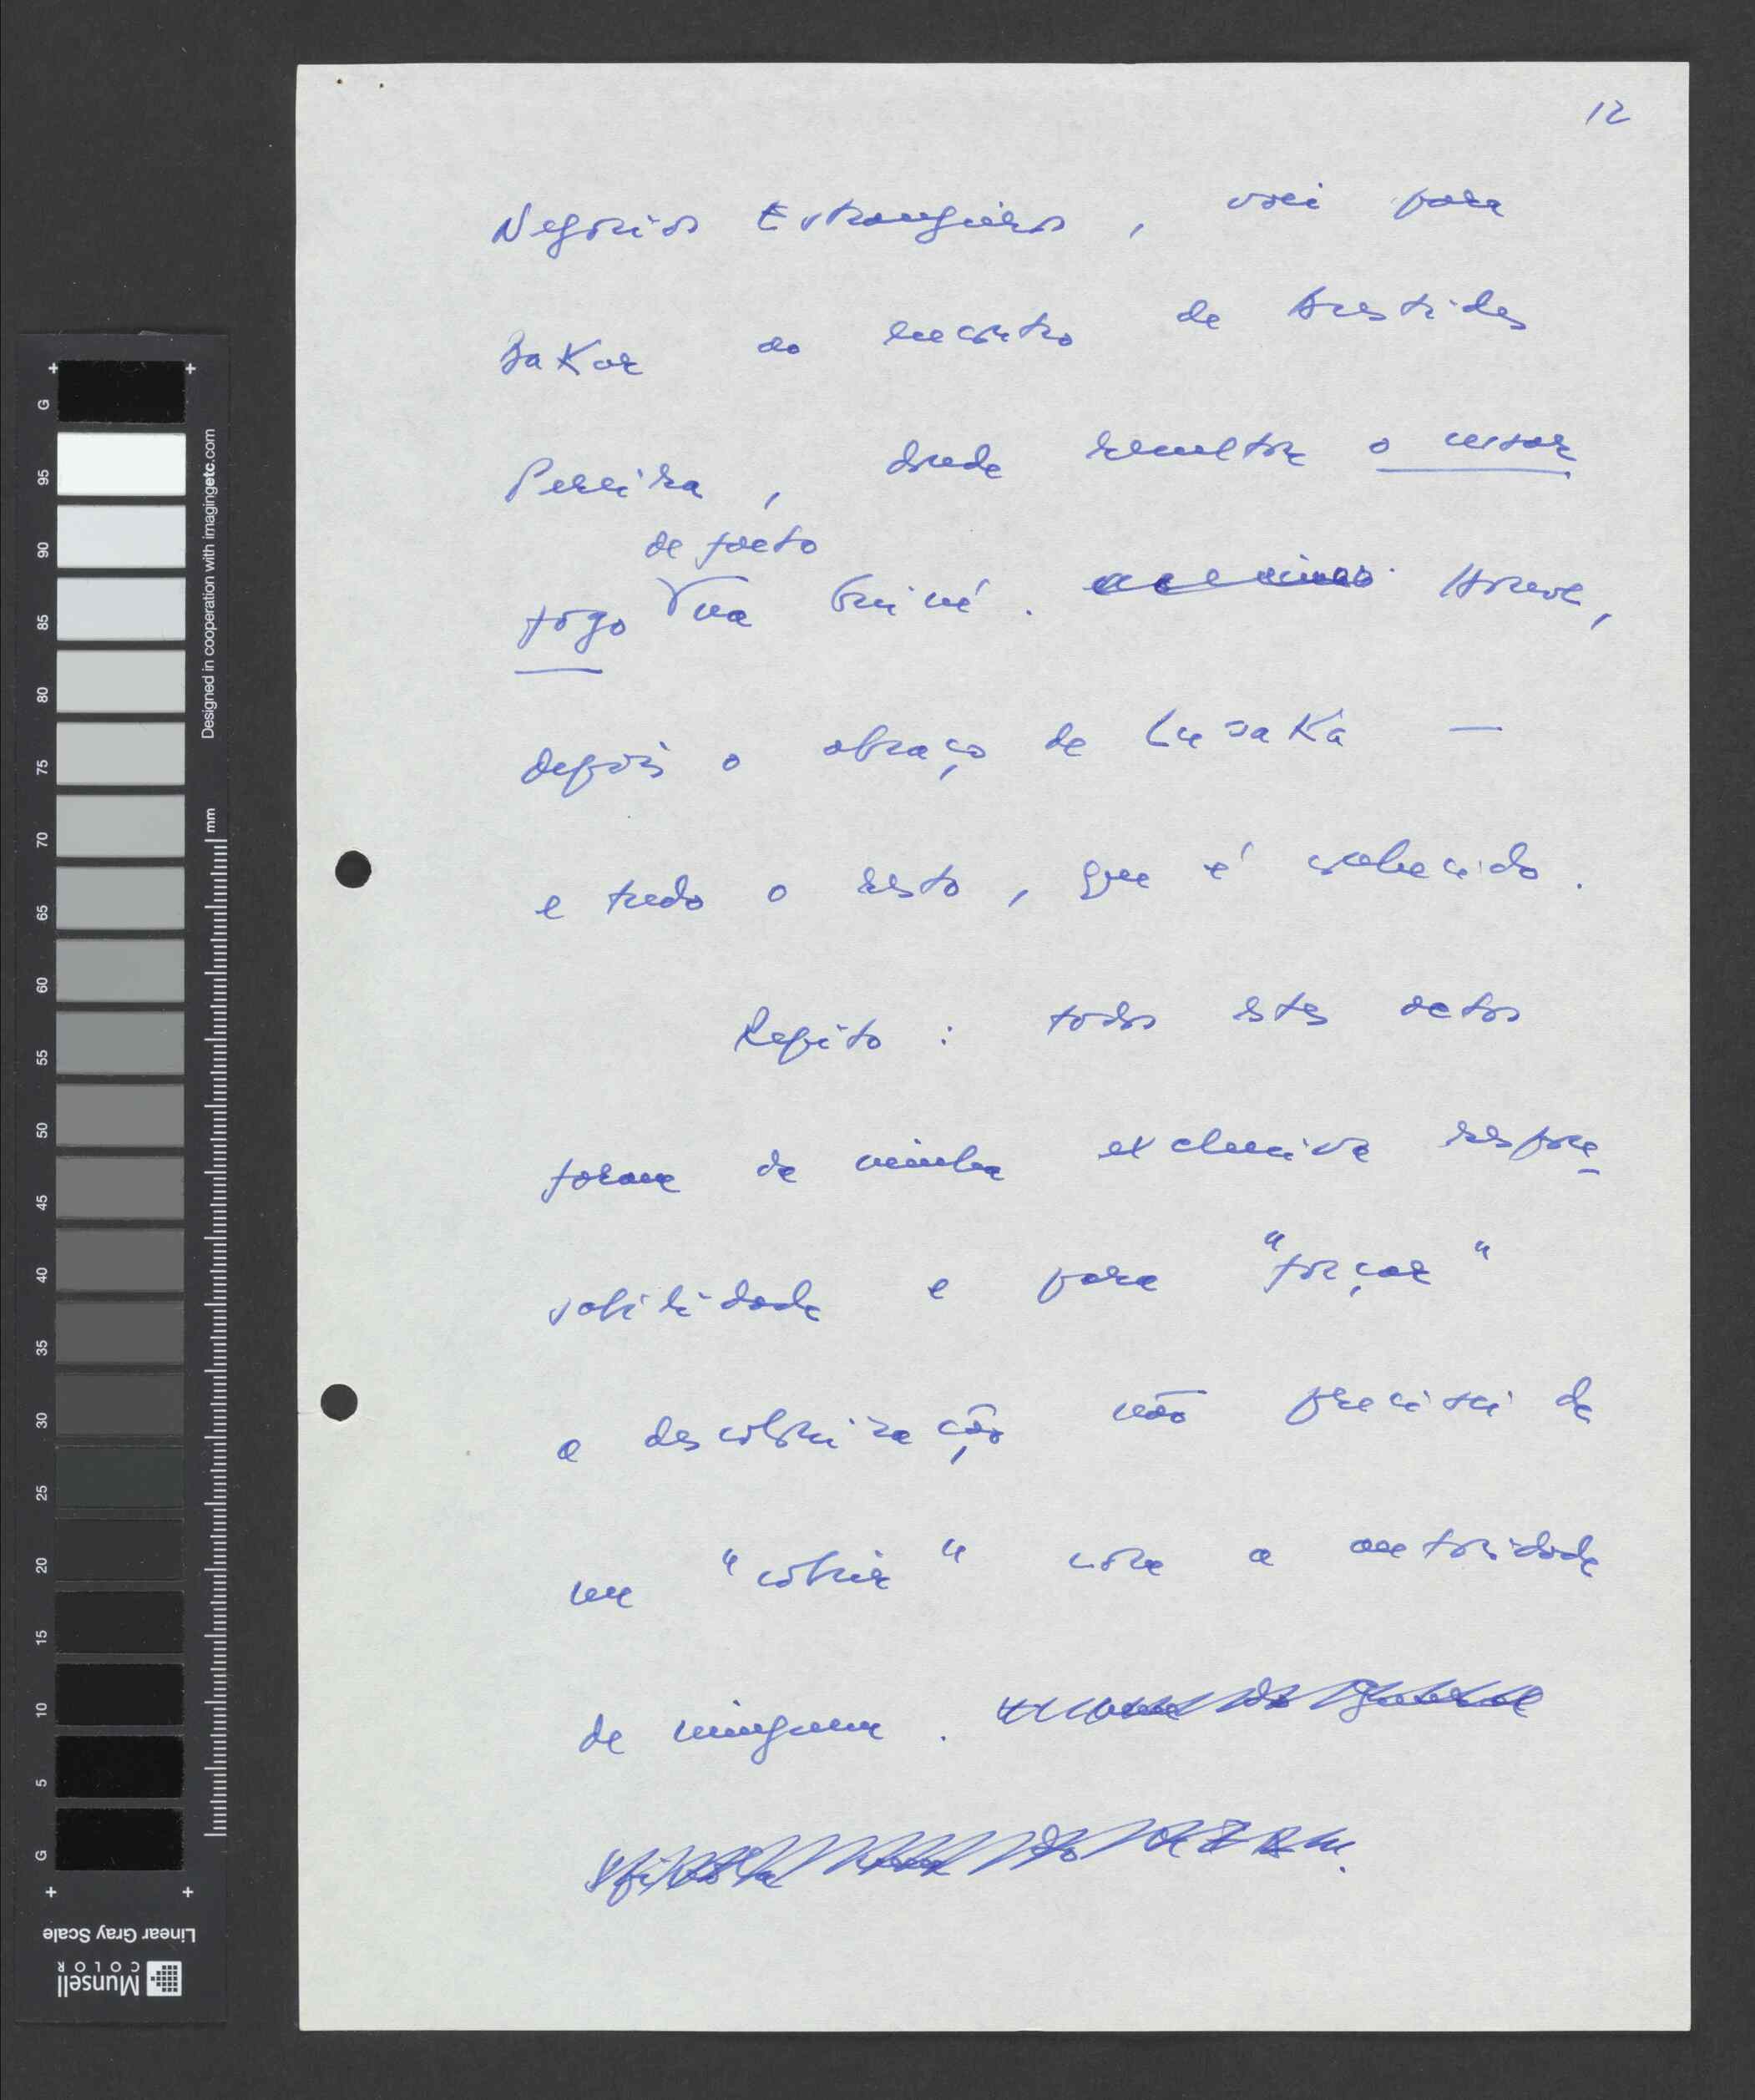 12
Negócios Estrangeiros, voei para
Dakar ao encontro de Aristides
Pereira, donde resultou o cessar
de facto
fogo na Guiné. Houve,
depois o abraço de Lusaka —
e tudo o resto, que é conhecido.
Repito: todos estes actos
foram da minha exclusiva respon-
sabilidade e para "forçar"
a descolonização não precisei de
me "cobrir" com a autoridade
de ninguém.
G 95 90 85 80 75 70 65 60 55 50 45 40 35 30 25 20 15 10 5 G
Designed in cooperation with imagingetc.com
mm
Linear Gray Scale
Munsell
COLOR